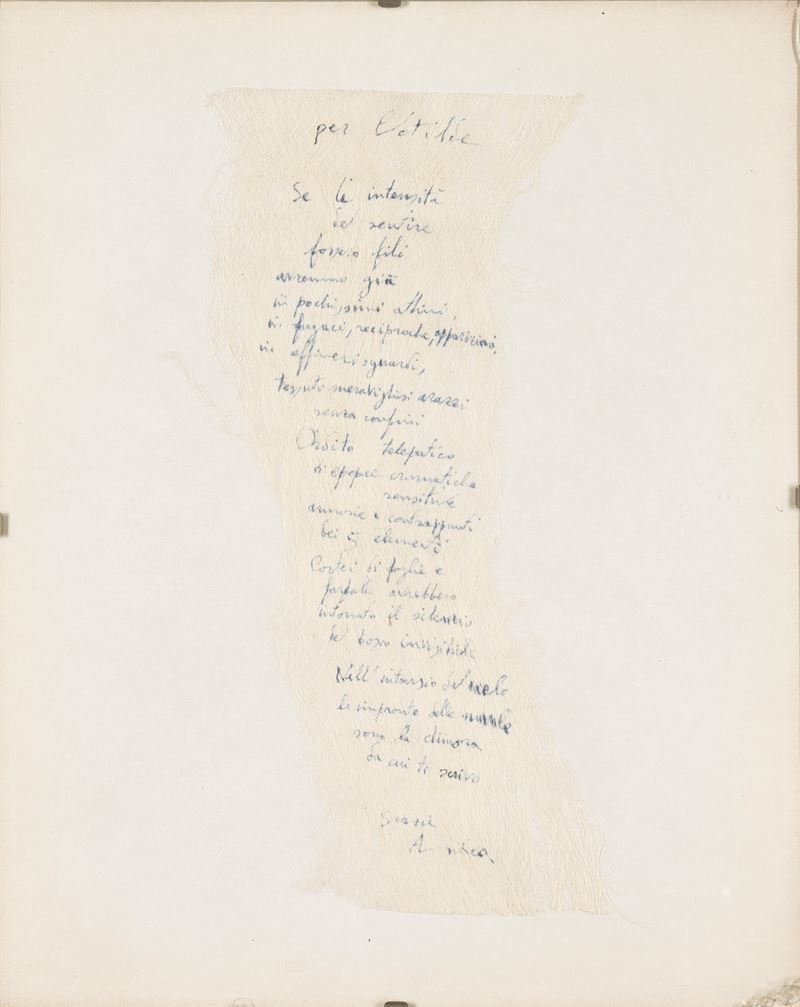 per
Se le intensità
del sentire
fossero fili
avremmo già
in pochissimi attimi,
in fugaci, reciproche, apparizioni,
in effimeri sguardi,
tessuto meravigliosi arazzi
senza confini
Ordito telepatico
di epopee cromatiche
sensitive
armonie e contrappunti
dei 5 elementi
Cortei di foglie e
farfalle avrebbero
intonato il silenzio
del bosco invisibile
Nell'intarsio del cielo
le impronte delle nuvole
sono la dimora
da cui ti scrivo
Grazie